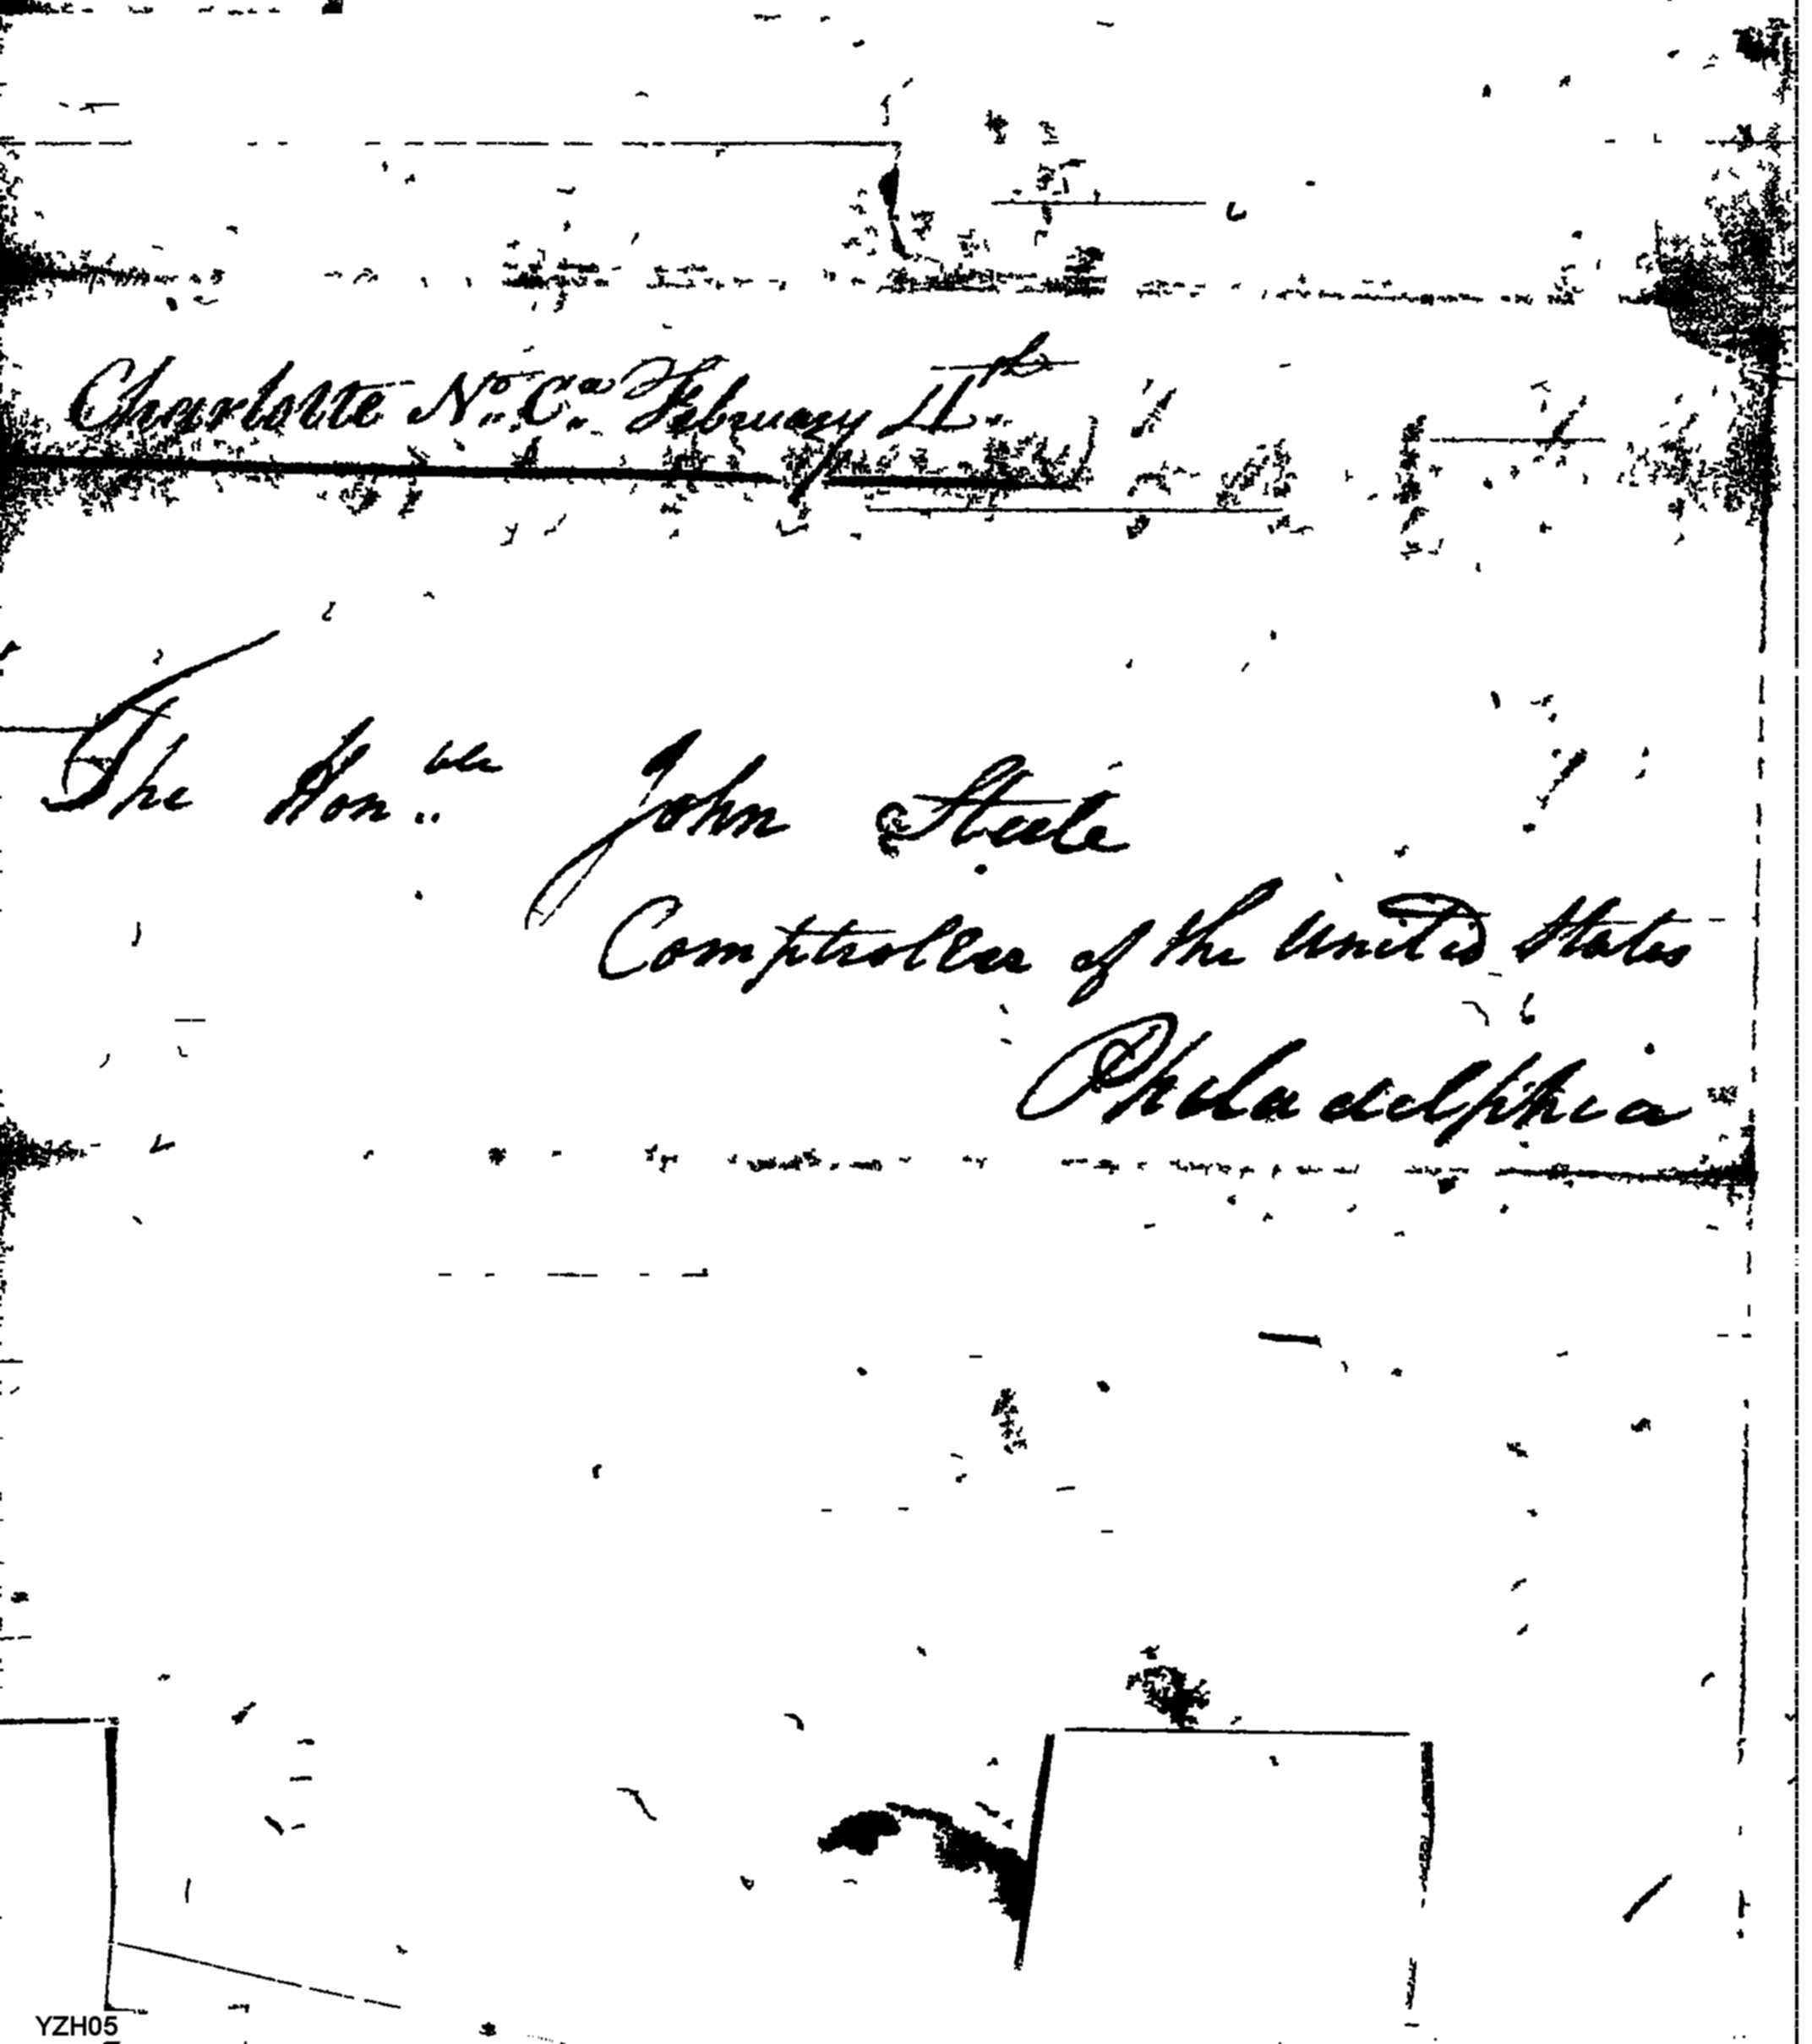 Charlotte No. Ca. February 11th
The Honble John Steele
Comptroller of the United States
Philadelphia
YZH05